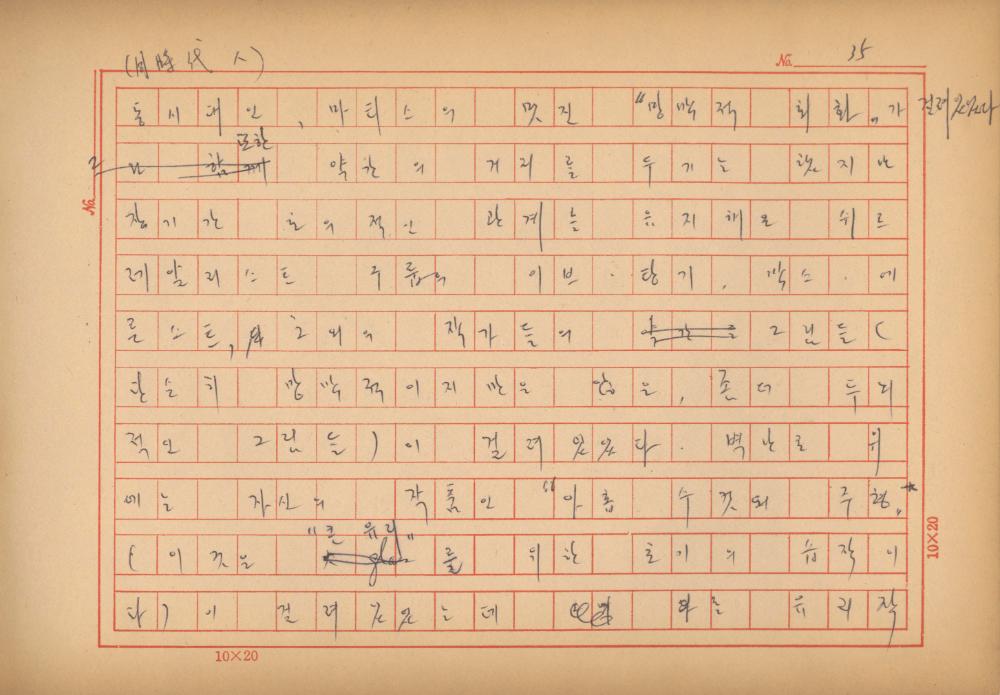 (同時代人)
No. 35
동시대인, 마티스의 멋진 “망막적 회화„가 걸려있었다
그 또한 약간의 거리를 두기는 했지만
장기간 호의적인 관계를 유지해온 쉬르
레알리스트 구룹의 이브·탕기, 막스·에
른스트, 그 외의 작가들의 그림들(
단순히 망막적이지만은 않은, 좀더 두뇌
적인 그림들)이 걸려있었다. 벽난로 위
에는 자신의 작품인 “아홉 수컷의 주형„*
(이것은 “큰 유리” 를 위한 초기의 습작이
다)이 걸려있었는데 또 다른 유리작
No.
10×20
10×20